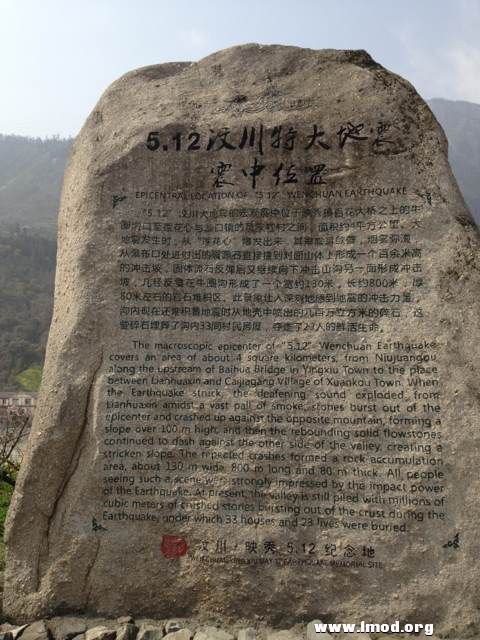 5.12汶川特大地震
震中位置
EPICENTRAL LOCATION OF "5.12" WENCHUAN EARTHQUAKE
"5.12"汶川大地震的宏观震中位于映秀镇百花大桥之上的牛
大地震发生时,从"莲花心"爆发出来,其声震耳欲聋,烟雾弥漫
的冲击坡,固体流石反弹后又继续向下冲击山沟另一面形成冲击
坡,几经反复在牛圈沟形成了一个宽约130米,长约800米,厚
80米左右的岩石堆积区。此景象让人深刻地感到地震的冲击力量。
沟内现在还堆积着地震时从地壳中喷出的几百万立方米的碎石,这
些碎石埋葬了沟内33间村民房屋,夺走了23人的鲜活生命。
The macroscopic epicenter of "5.12" Wenchuan Earthquake
covers an area of about 4 square kilometers, from Niujuangou
along the upstream of Baihua Bridge in Yingxiu Town to the place
between Lianhuaxin and Caijiagang Village of Xuankou Town. When
the Earthquake struck, the deafening sound exploded from
Lianhuaxin amidst a vast pall of smoke; stones burst out of the
epicenter and crashed up against the opposite mountain, forming a
slope over 100 m high, and then the rebounding solid flowstones
continued to dash against the other side of the valley, creating a
stricken slope. The repeated crashes formed a rock accumulation
area, about 130 m wide, 800 m long and 80 m thick. All people
seeing such a scene were strongly impressed by the impact power
of the Earthquake. At present, the valley is still piled with millions of
cubic meters of crushed stones bursting out of the crust during the
Earthquake, under which 33 houses and 23 lives were buried.
汶川/映秀 5.12 纪念地
www.lmod.org